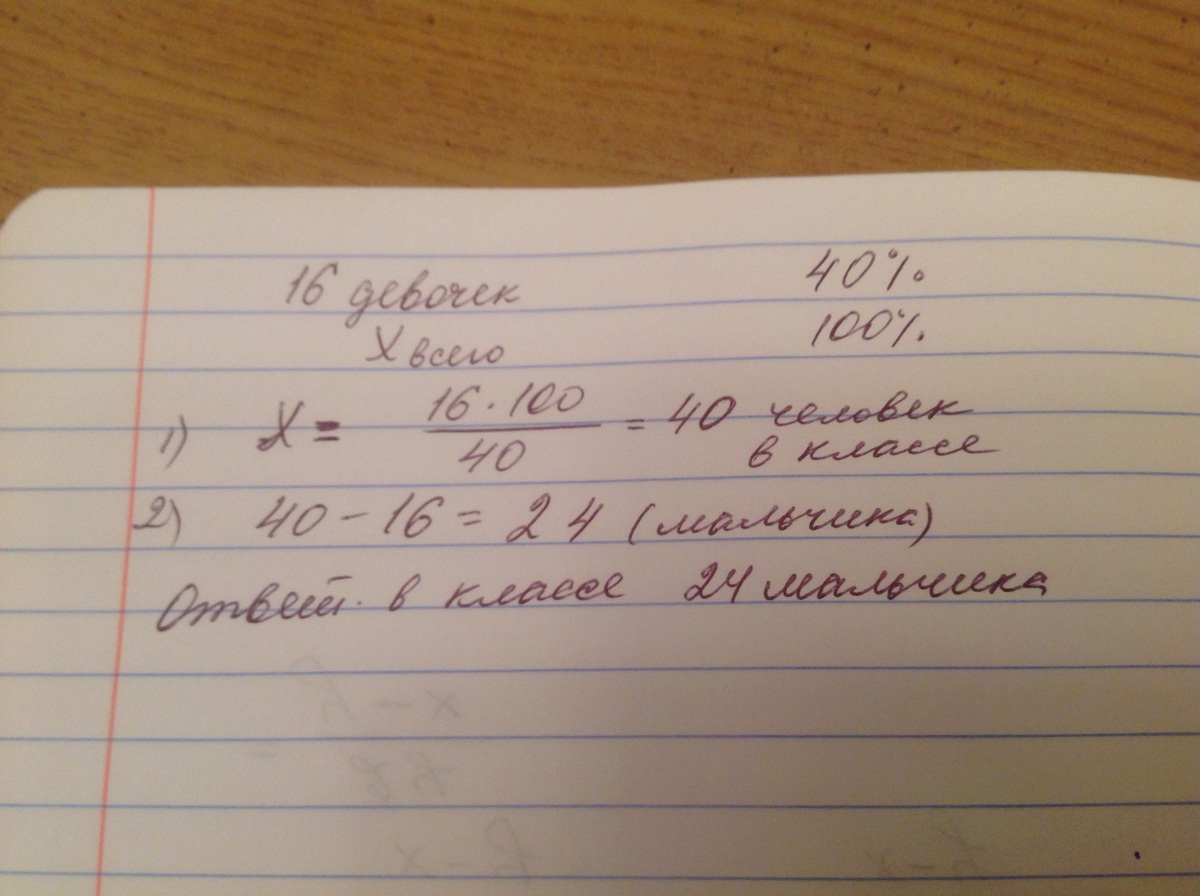 16 девочек 40%
X всего 100%
1) X = 16 · 100 / 40 = 40 человек
в классе
2) 40 - 16 = 24 (мальчика)
Ответ. в классе 24 мальчика